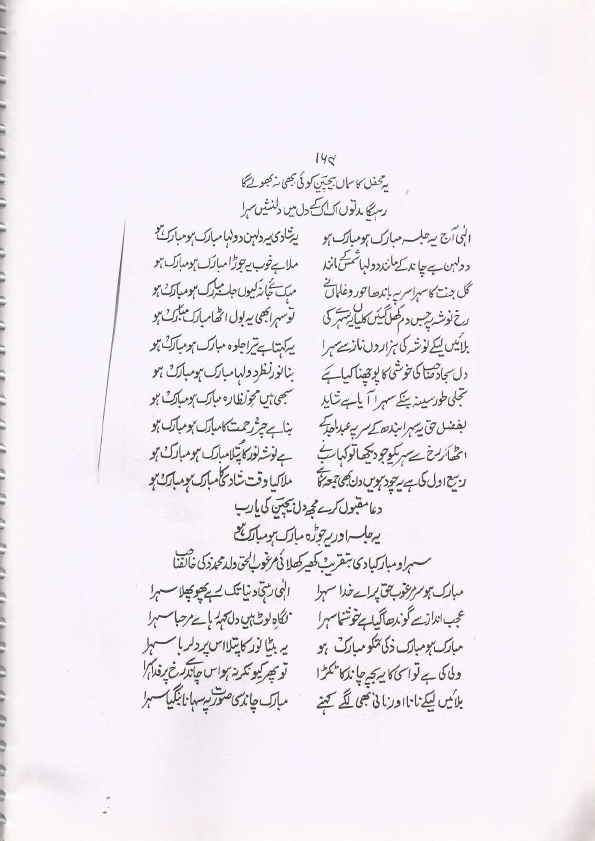 ۱۶۹
یہ محفل کا سماں بیچین کوئی بھی نہ بھولے گا
رہیگا مدتوں اک اک کے دل میں دلنشیں سہرا
الٰہی آج یہ جلسہ مبارک ہو مبارک ہو یہ شادی یہ دلہن دولہا مبارک ہو مبارک ہو
دولہن ہے چاند کے مانند دولہا شمس کے مانند ملا ہے خوب یہ جوڑا مبارک ہو مبارک ہو
گل جنت کا سہرا سر پہ باندھا حور و غلماں نے مہک نہ کیوں جلسہ مبارک ہو مبارک ہو
رخ نوشہ پہ جس دم کھل گئیں کلیاں یہ سہرے کی تو سہرا بھی یہ بول اٹھا مبارک ہو مبارک ہو
بلائیں لیکے نوشہ کی ہزاروں ناز سے سہرا یہ کہتا ہے ترا جلوہ مبارک ہو مبارک ہو
دل سجاد صاحب کی خوشی کا پوچھنا کیا ہے بنا نور نظر دولہا مبارک ہو مبارک ہو
تجلی طور سینہ بنکے سہرا آیا ہے شاید سبھی ہیں محو نظارہ مبارک ہو مبارک ہو
بفضل حق یہ سہرا بندھ کے سر پہ عبدالماجد کے بنا ہے چتر رحمت کا مبارک ہو مبارک ہو
اٹھا کر رخ سے سہرے کو جو دیکھا تو کہا سب نے ہے نوشہ نور کا پتلا مبارک ہو مبارک ہو
ربیع اول کی ہے یہ چودہویں دن بھی جمعہ کا ہے ملا کیا وقت شادی کا مبارک ہو مبارک ہو
دعا مقبول کرے مجھ دل بیچین کی یا رب
یہ جلسہ اور یہ جوڑہ مبارک ہو مبارک ہو
سہرا و مبارکبادی بتقریب کھیر کھلائی مرغوب الحق ولد محمد ذکی خالصاحب
مبارک ہو سر مرغوب حق پر اے خدا سہرا الٰہی رہتی دنیا تک رہے پھولا پھلا سہرا
عجب انداز سے گوندھا گیا ہے خوشنما سہرا نگاہ لوٹ ہیں دل کہہ رہا ہے مرحبا سہرا
مبارک ہو مبارک ذکی تمکو مبارک ہو یہ بیٹا نور کا پتلا اس پر دلربا سہرا
ولی کی ہے تو اسی کا یہ بچہ چاند کا ٹکڑا تو پھر کیونکر نہ ہو اس چاند کے رخ پر فدا سہرا
بلائیں لیکے نانا اور نانی بھی لگے کہنے مبارک چاند سی صورت پہ سہانا بنگیا سہرا